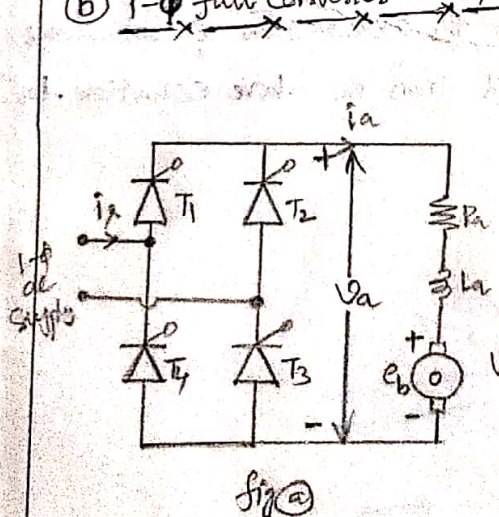 (b) 1-ϕ full Converter
ia
+
is
T1
T2
Ra
1-ϕ
ac
Supply
La
va
+
T4
T3
eb
-
-
fig (a)